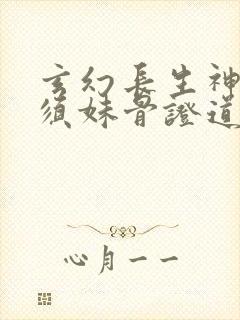 玄幻長生神
須妹骨證道
心月一一